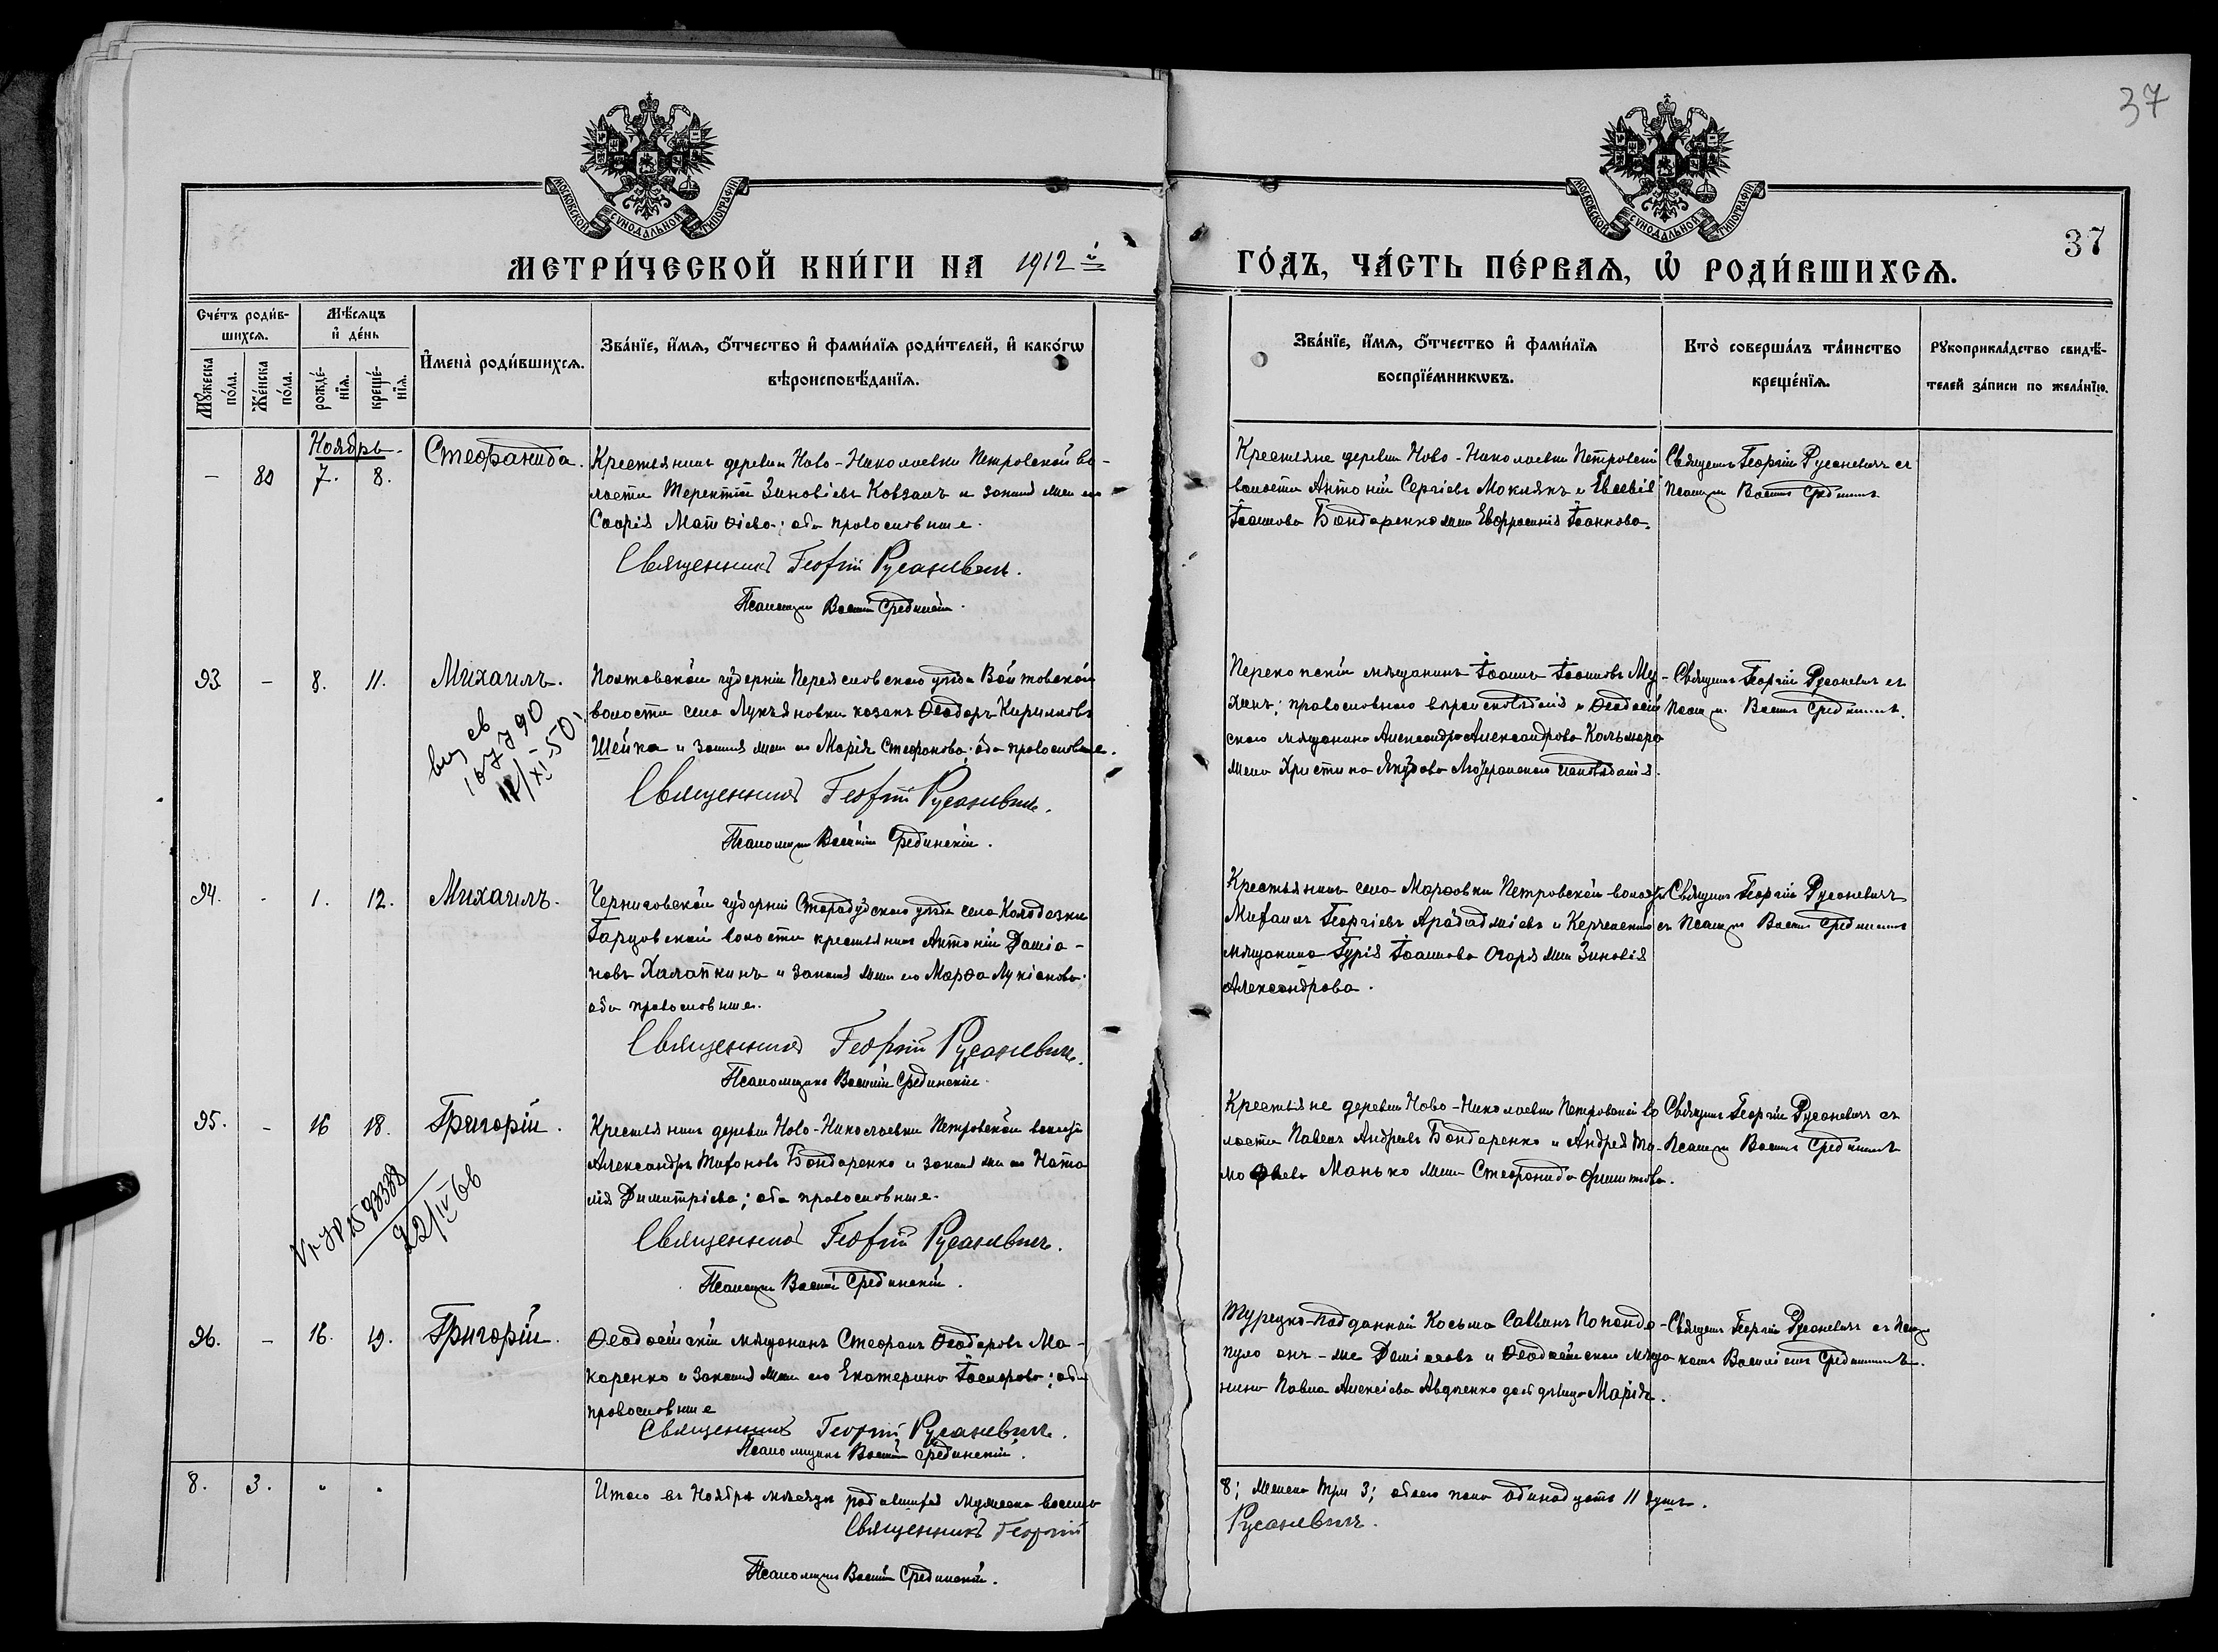 37
МОСКОВСКОЙ СѴНОДАЛЬНОЙ ТИПОГРАФІИ
МОСКОВСКОЙ СѴНОДАЛЬНОЙ ТИПОГРАФІИ
37
МЕТРИ́ЧЕСКОЙ КНИ́ГИ НА 1912 й
ГО́ДЪ, ЧА́СТЬ ПЕ́РВАѦ, Ѽ РОДИ́ВШИХСѦ.
Сче́тъ роди́в-
шихсѧ.
Мѣ́сѧцъ
и҆ де́нь
Мꙋ́жеска по́ла.
Же́нска по́ла.
рожде́нїѧ.
креще́нїѧ.
И҆мена̀ роди́вшихсѧ.
Зва́нїе, и҆́мѧ, ѻ҆́тчество и҆ фами́лїѧ роди́телей, и҆ како́гѡ
вѣроисповѣ́данїѧ.
Зва́нїе, и҆́мѧ, ѻ҆́тчество и҆ фами́лїѧ
воспрїе́мникѡвъ.
Кто̀ соверша́лъ та́инство
креще́нїѧ.
Рꙋкоприкла́дство свидѣ́-
телей за́писи по жела́нїю.
Ноябрь.
— 80 7. 8. Стефанида.
Крестьянинъ деревни Ново-Николаевки Петровской во-
лости Терентій Зиновіевъ Ковзалъ и законная жена его
Софія Матѳіева; оба православные.
Священникъ Георгій Русаневичъ.
Псаломщикъ Василій Срединскій.
Крестьяне деревни Ново-Николаевки Петровской
волости Антоній Сергіевъ Мокнякъ и Евсевія
Іоаннова Бондаренко жена Евфросинія Іоаннова.
Священ. Георгій Русаневичъ съ
Псаломщ. Василіемъ Срединскимъ
93 — 8. 11. Михаилъ.
Полтавской губерніи Переяславскаго уѣзда Войтовской
волости села Лукьяновки казакъ Ѳеодоръ Кирилловъ
Шейка и законная жена его Марія Стефанова; оба православные.
Священникъ Георгій Русаневичъ.
Псаломщикъ Василій Срединскій.
167790
12/XI-50
Перекопскій мѣщанинъ Іоаннъ Іоанновъ Му-
хинъ; православнаго вѣроисповѣданія и Ѳеодосій
скаго мѣщанина Александра Александрова Кальмара
жена Христина Якубова Лютеранскаго исповѣданія.
Священ. Георгій Русаневичъ съ
Псаломщ. Василіемъ Срединскимъ.
94. - 1. 12. Михаилъ.
Черниговской губерніи Стародубскаго уѣзда села Колодезки
Гарцовской волости крестьянинъ Антоній Даміа-
новъ Халапкинъ и законная жена его Марфа Лукіанова
оба православные.
Священникъ Георгій Русаневичъ.
Псаломщикъ Василій Срединскій.
Крестьянинъ села Марфовки Петровской волости
Михаилъ Георгіевъ Арабаджіевъ и Керченскаго
мѣщанина Гурія Іоаннова Огаря жена Зиновія
Александрова.
Священ. Георгій Русаневичъ
съ Псаломщ. Василіемъ Срединскимъ
95. - 16 18. Григорій.
Крестьянинъ деревни Ново-Николаевки Петровской волости
Александръ Тифоновъ Бондаренко и законная жена его Ната
лія Димитріева; оба православные.
Священникъ Георгій Русаневичъ.
Псаломщикъ Василій Срединскій.
22/IV 66
Крестьяне деревни Ново-Николаевки Петровской во
лости Павелъ Андреевъ Бондаренко и Андрея Ти-
моѳеева Манько жена Стефанида Филиппова.
Священ. Георгій Русаневичъ съ
Псаломщ. Василіемъ Срединскимъ
96. — 16. 19. Григорій.
Ѳеодосійскій мѣщанинъ Стефанъ Ѳеодоровъ Ма-
каренко и законная жена его Екатерина Іосифова; оба
православные
Священникъ Георгій Русаневичъ.
Псаломщикъ Василій Срединскій.
Турецко-подданный Косьма Саввинъ Попандо-
пуло онъ-же и Ѳеодосійскаго мѣща
нина Павла Алексіева Авдѣенко дочь дѣвица Марія.
Священ. Георгій Русаневичъ съ Псаломщи
комъ Василіемъ Срединскимъ.
8. 3. " "
Итого въ Ноябрѣ мѣсяцѣ родившихся мужеска восемь
8; женска три 3; обоего пола одинадцать 11 душъ.
Священникъ Георгій
Русаневичъ.
Псаломщикъ Василій Срединскій.